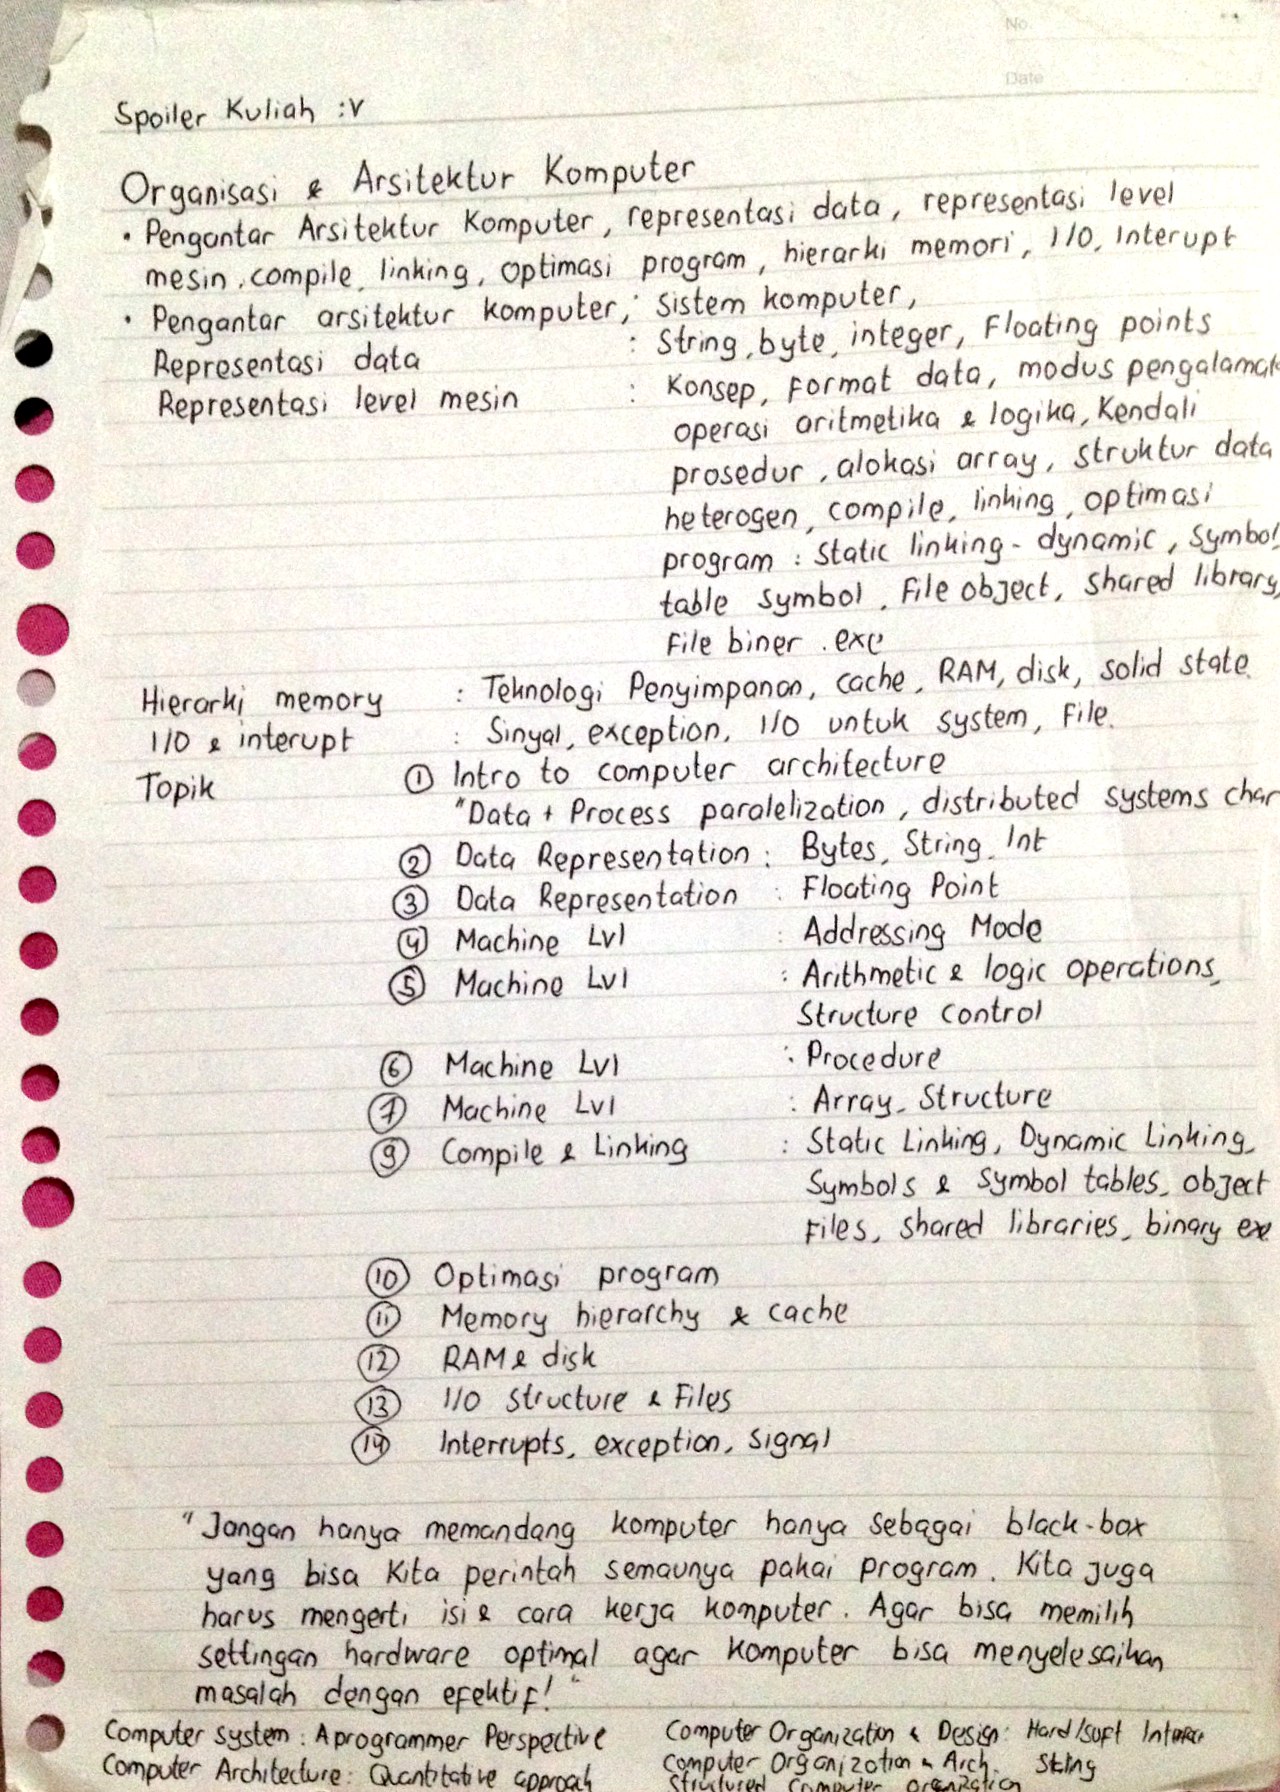 No.
Date
Spoiler Kuliah :v
Organisasi & Arsitektur Komputer
• Pengantar Arsitektur Komputer, representasi data, representasi level
mesin, compile, linking, optimasi program, hierarki memori, I/O, Interupt
• Pengantar arsitektur komputer, : Sistem komputer,
Representasi data : String, byte, integer, Floating points
Representasi level mesin : Konsep, format data, modus pengalamat
operasi aritmetika & logika, Kendali
prosedur, alokasi array, struktur data
heterogen, compile, linking, optimasi
program : static linking - dynamic, symbol,
table symbol, File object, shared library,
File biner .exe
Hierarki memory : Teknologi Penyimpanan, cache, RAM, disk, solid state
I/O & interupt : Sinyal, exception, I/O untuk system, File.
Topik ① Intro to computer architecture
"Data + Process paralelization, distributed systems char
② Data Representation : Bytes, String, Int
③ Data Representation : Floating Point
④ Machine Lvl : Addressing Mode
⑤ Machine Lvl : Arithmetic & logic operations,
Structure control
⑥ Machine Lvl : Procedure
⑦ Machine Lvl : Array, Structure
⑨ Compile & Linking : Static Linking, Dynamic Linking,
Symbols & symbol tables, object
Files, shared libraries, binary exe
⑩ Optimasi program
⑪ Memory hierarchy & cache
⑫ RAM & disk
⑬ I/O structure & Files
⑭ Interrupts, exception, signal
"Jangan hanya memandang komputer hanya sebagai black-box
yang bisa Kita perintah semaunya pakai program. Kita juga
harus mengerti isi & cara kerja komputer. Agar bisa memilih
settingan hardware optimal agar komputer bisa menyelesaikan
masalah dengan efektif!"
Computer system : A programmer Perspective Computer Organization & Design: Hard/soft Interface
Computer Architecture: Quantitative approach Computer Organization & Arch. Stling
Structured Computer organization